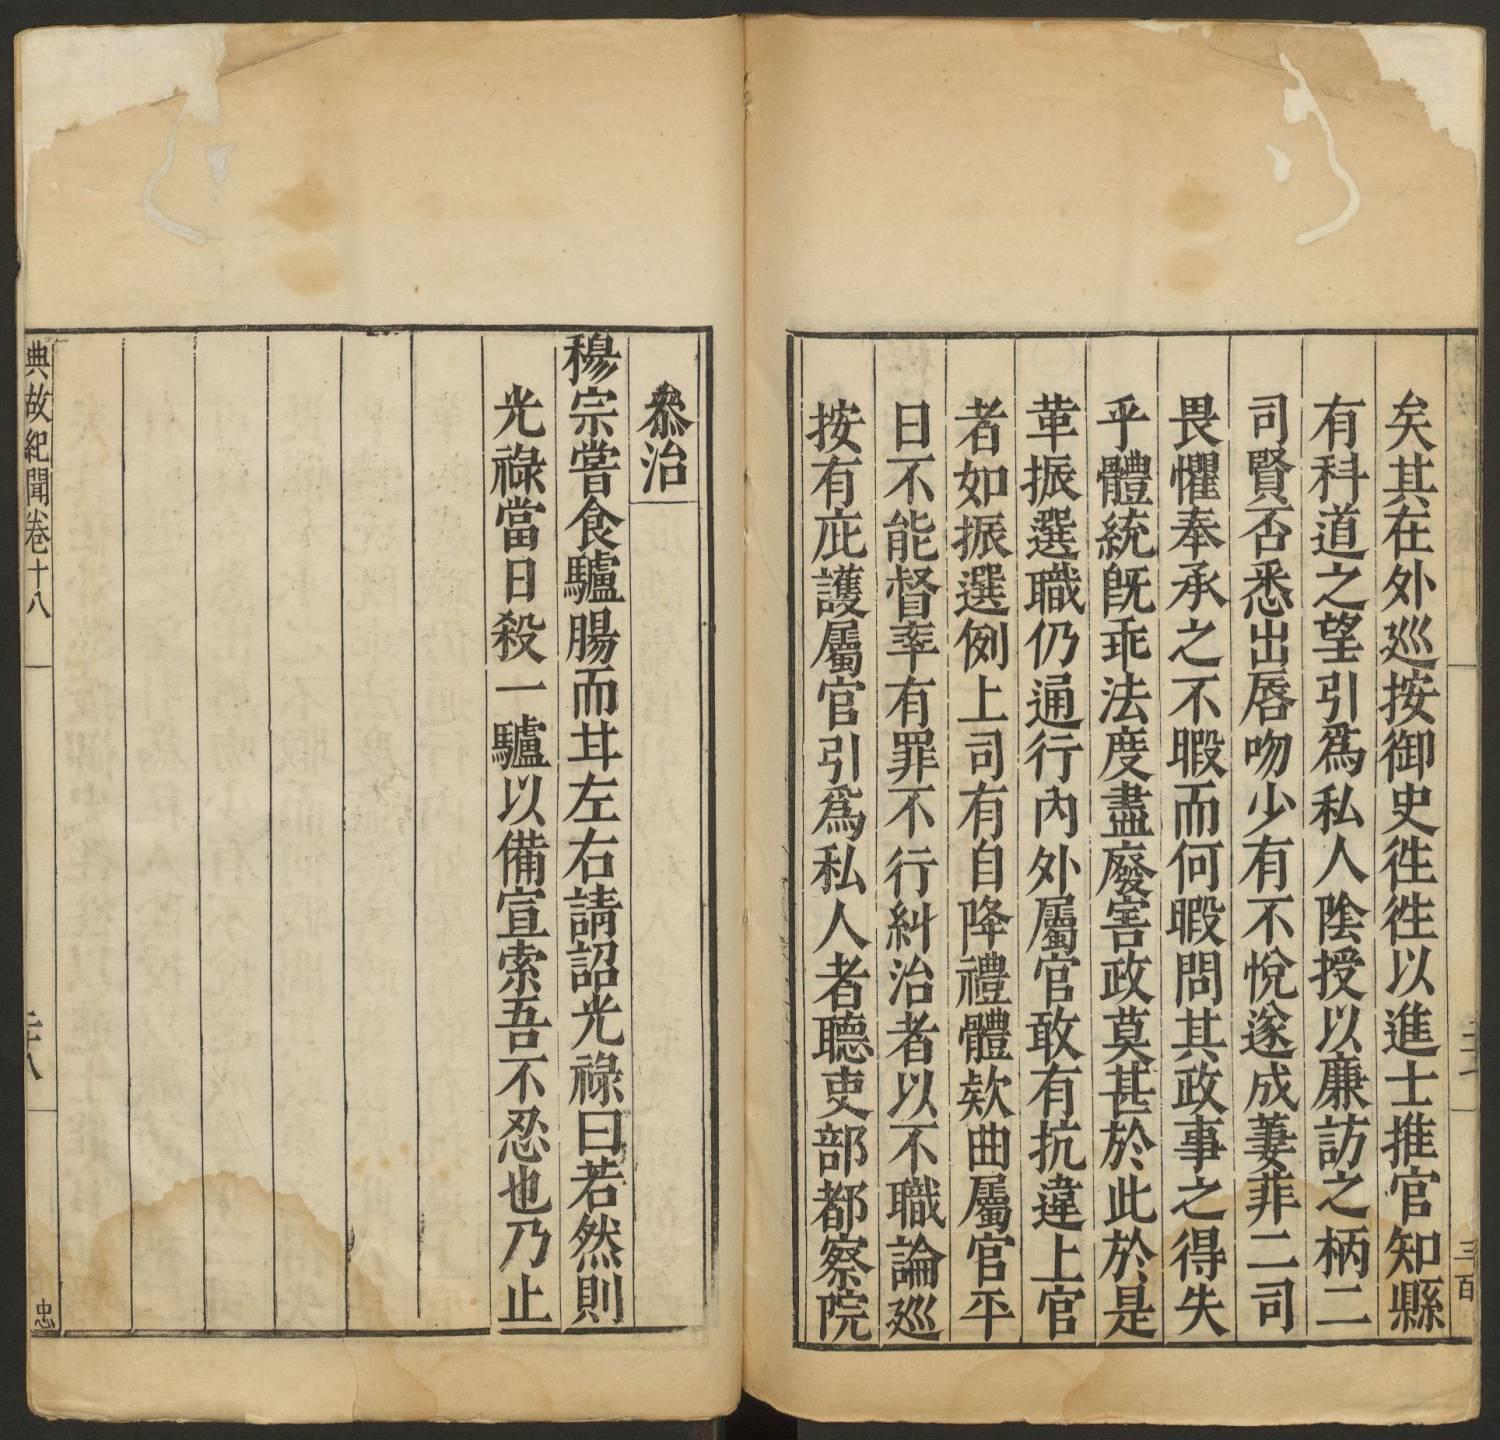 矣其在外巡按御史徃徃以進士推官知縣
有科道之望引爲私人陰授以廉訪之柄二
司賢否悉出唇吻少有不悅遂成萋菲二司
畏懼奉承之不暇而何暇問其政事之得失
乎體統旣乖法度盡廢害政莫甚於此於是
革振選職仍通行內外屬官敢有抗違上官
者如振選例上司有自降禮體欵曲屬官平
日不能督率有罪不行糾治者以不職論巡
按有庇護屬官引爲私人者聽吏部都察院
叅治
穆宗嘗食驢腸而甘左右請詔光祿曰若然則
光祿當日殺一驢以備宣索吾不忍也乃止
典故紀聞卷十八
忠